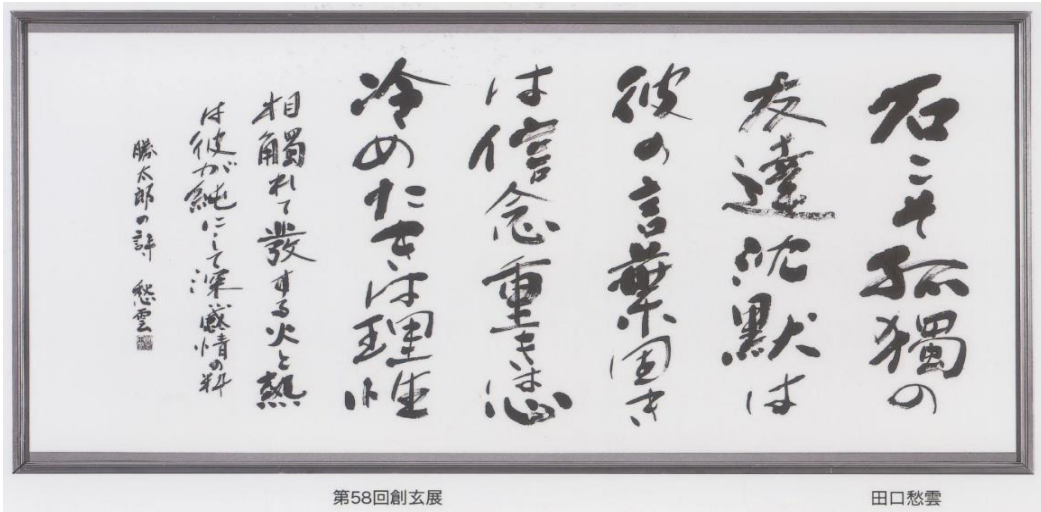 石こそ孤獨の
友達沈默は
彼の言葉固き
は信念重きは
冷めたきは理性
相觸れて發する火と熱
は彼が純にして深い感情の料
勝太郎の詩 愁雲
第58回創玄展
田口愁雲